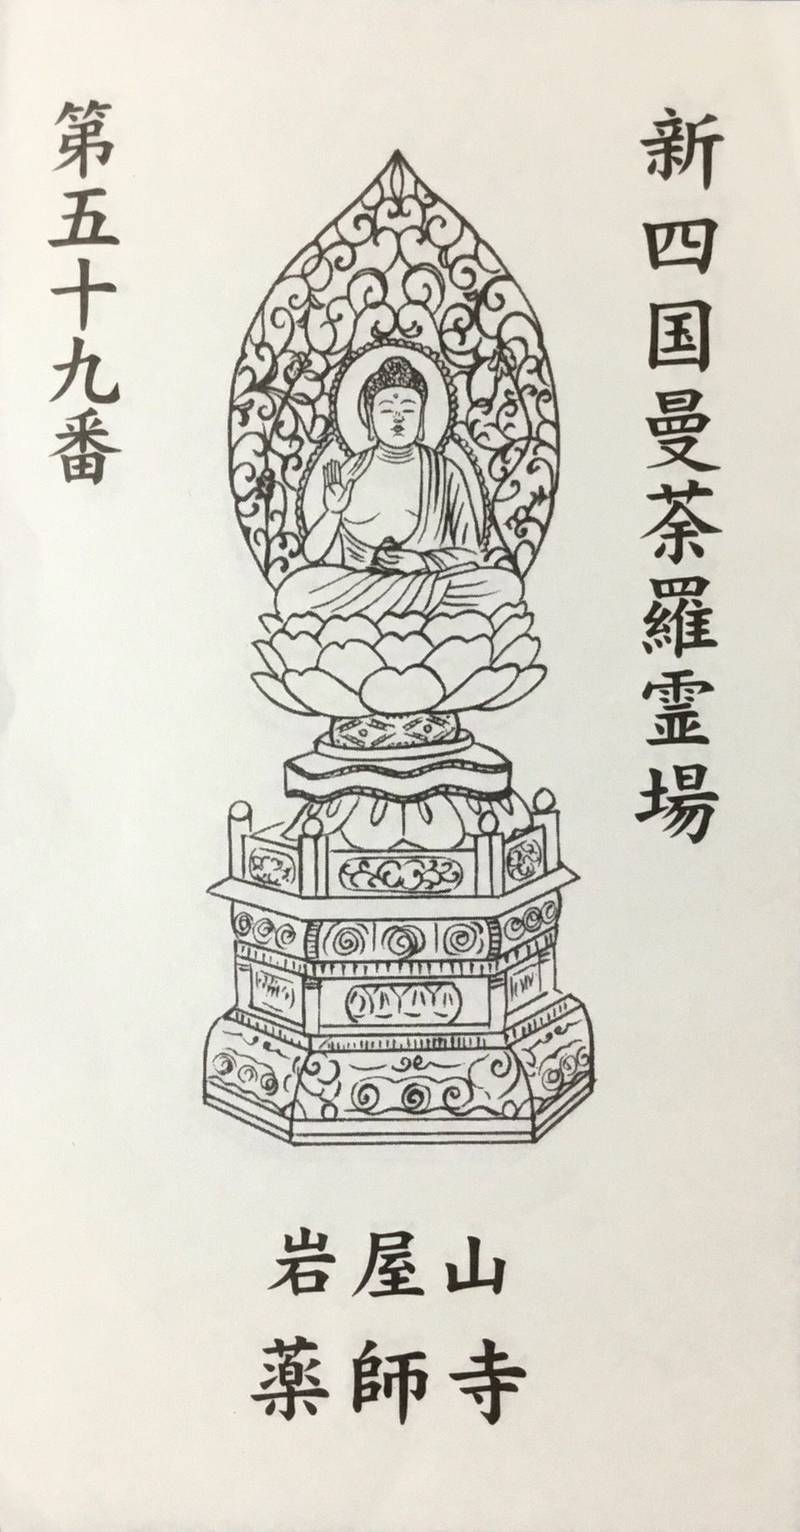 新四国曼荼羅霊場
第五十九番
岩屋山
薬師寺